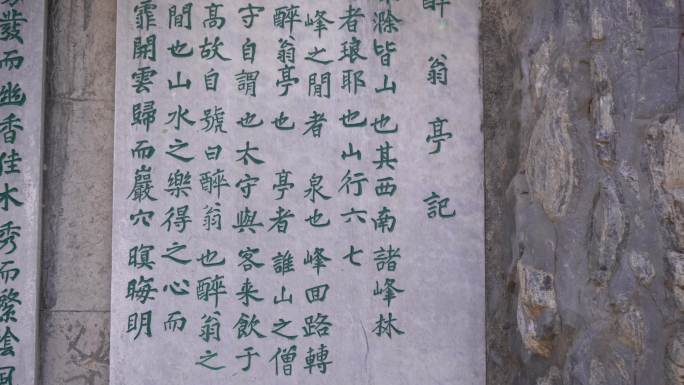 醉翁亭記
滁皆山也其西南諸峰林
者琅耶也山行六七
峰之間者 泉也峰回路轉
醉翁亭也 亭者誰山之僧
守自謂也太守與客来飲于
高故自號曰醉翁也醉翁之
間也山水之樂得之心而
霏開雲歸而巖穴暝晦明
發而幽香佳木秀而繁陰風